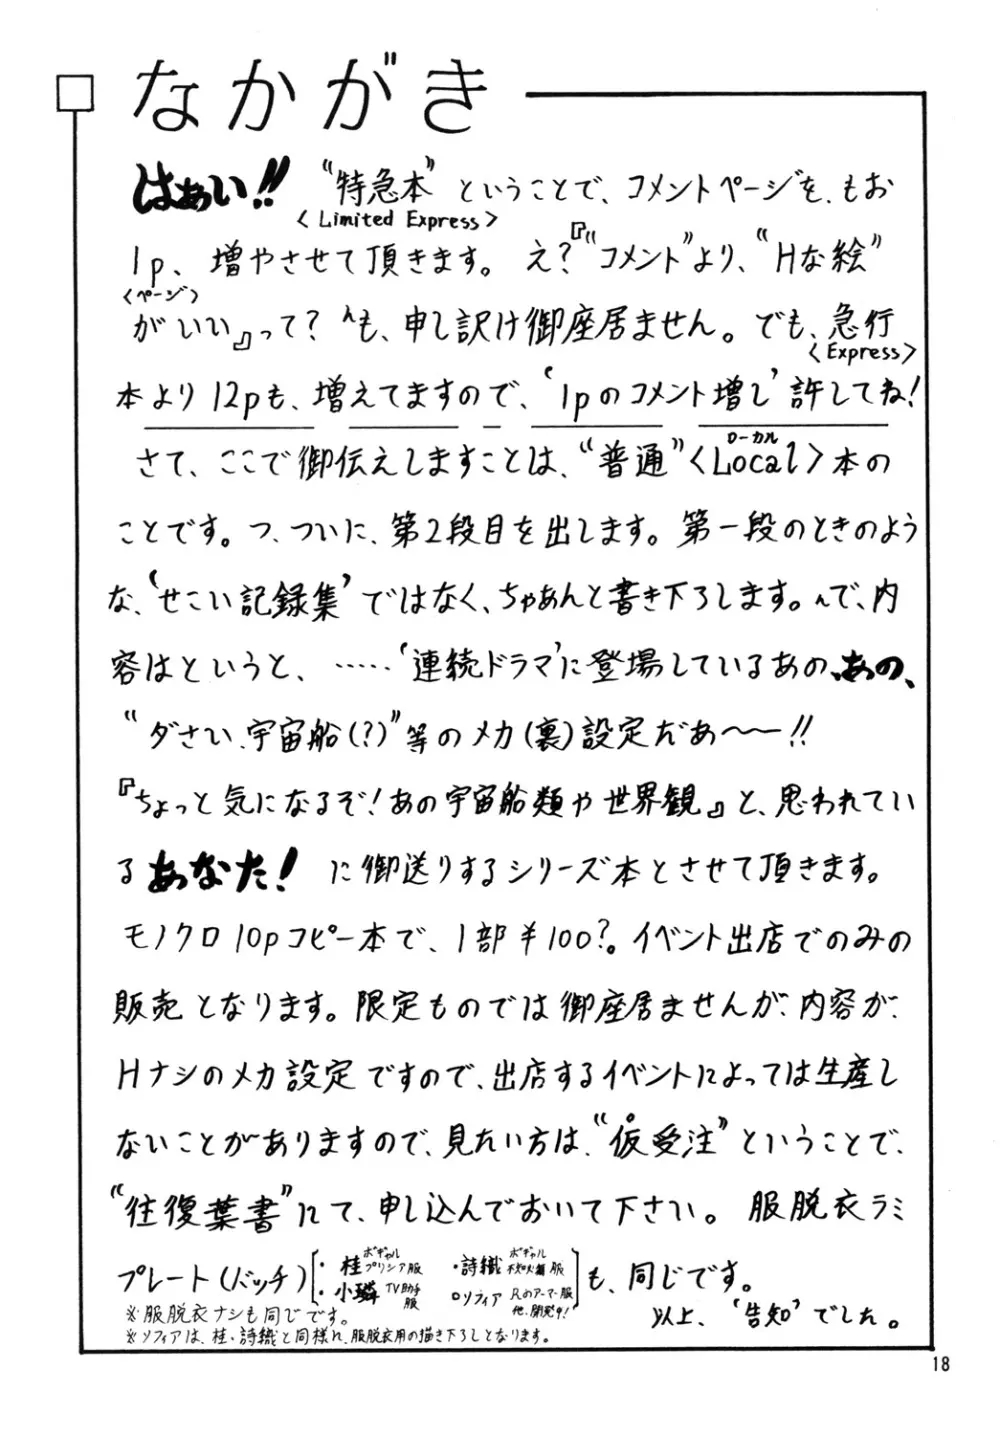 なかがき
はぁい!! “特急本”ということで、コメントページを、もお
〈Limited Express〉
1p、増やさせて頂きます。え?『“コメント”より、“Hな絵”
〈ページ〉
がいい』って? へも、申し訳け御座居ません。でも、急行
〈Express〉
本より12pも、増えてますので、‘1pのコメント増し’許してね!
さて、ここで御伝えしますことは、“普通”〈Local〉本の
ローカル
ことです。つ、ついに、第2段目を出します。第一段のときのよう
な、‘せこい記録集’ではなく、ちゃあんと書き下ろします。んで、内
容はというと、……‘連続ドラマ’に登場しているあの、あの、
“ダさい、宇宙船(?)”等のメカ(裏)設定だあ〜〜!!
『ちょっと気になるぞ!あの宇宙船類や世界観』と、思われてい
るあなた! に御送りするシリーズ本とさせて頂きます。
モノクロ10pコピー本で、1部¥100?。イベント出店でのみの
販売となります。限定ものでは御座居ませんが、内容が、
Hナシのメカ設定ですので、出店するイベントによっては生産し
ないことがありますので、見たい方は、“仮受注”ということで、
“往復葉書”にて、申し込んでおいて下さい。服脱衣ラミ
プレート(バッチ)
・桂 ボギャル プリシア服
・詩織 ボギャル 服
・小璘 TV助手服
○ソフィア Rのアーマー服 他、開発中!
も、同じです。
※服脱衣ナシも同じです。
※ソフィアは、桂・詩織と同様に、服脱衣用の描き下ろしとなります。
以上、‘告知’でした。
18